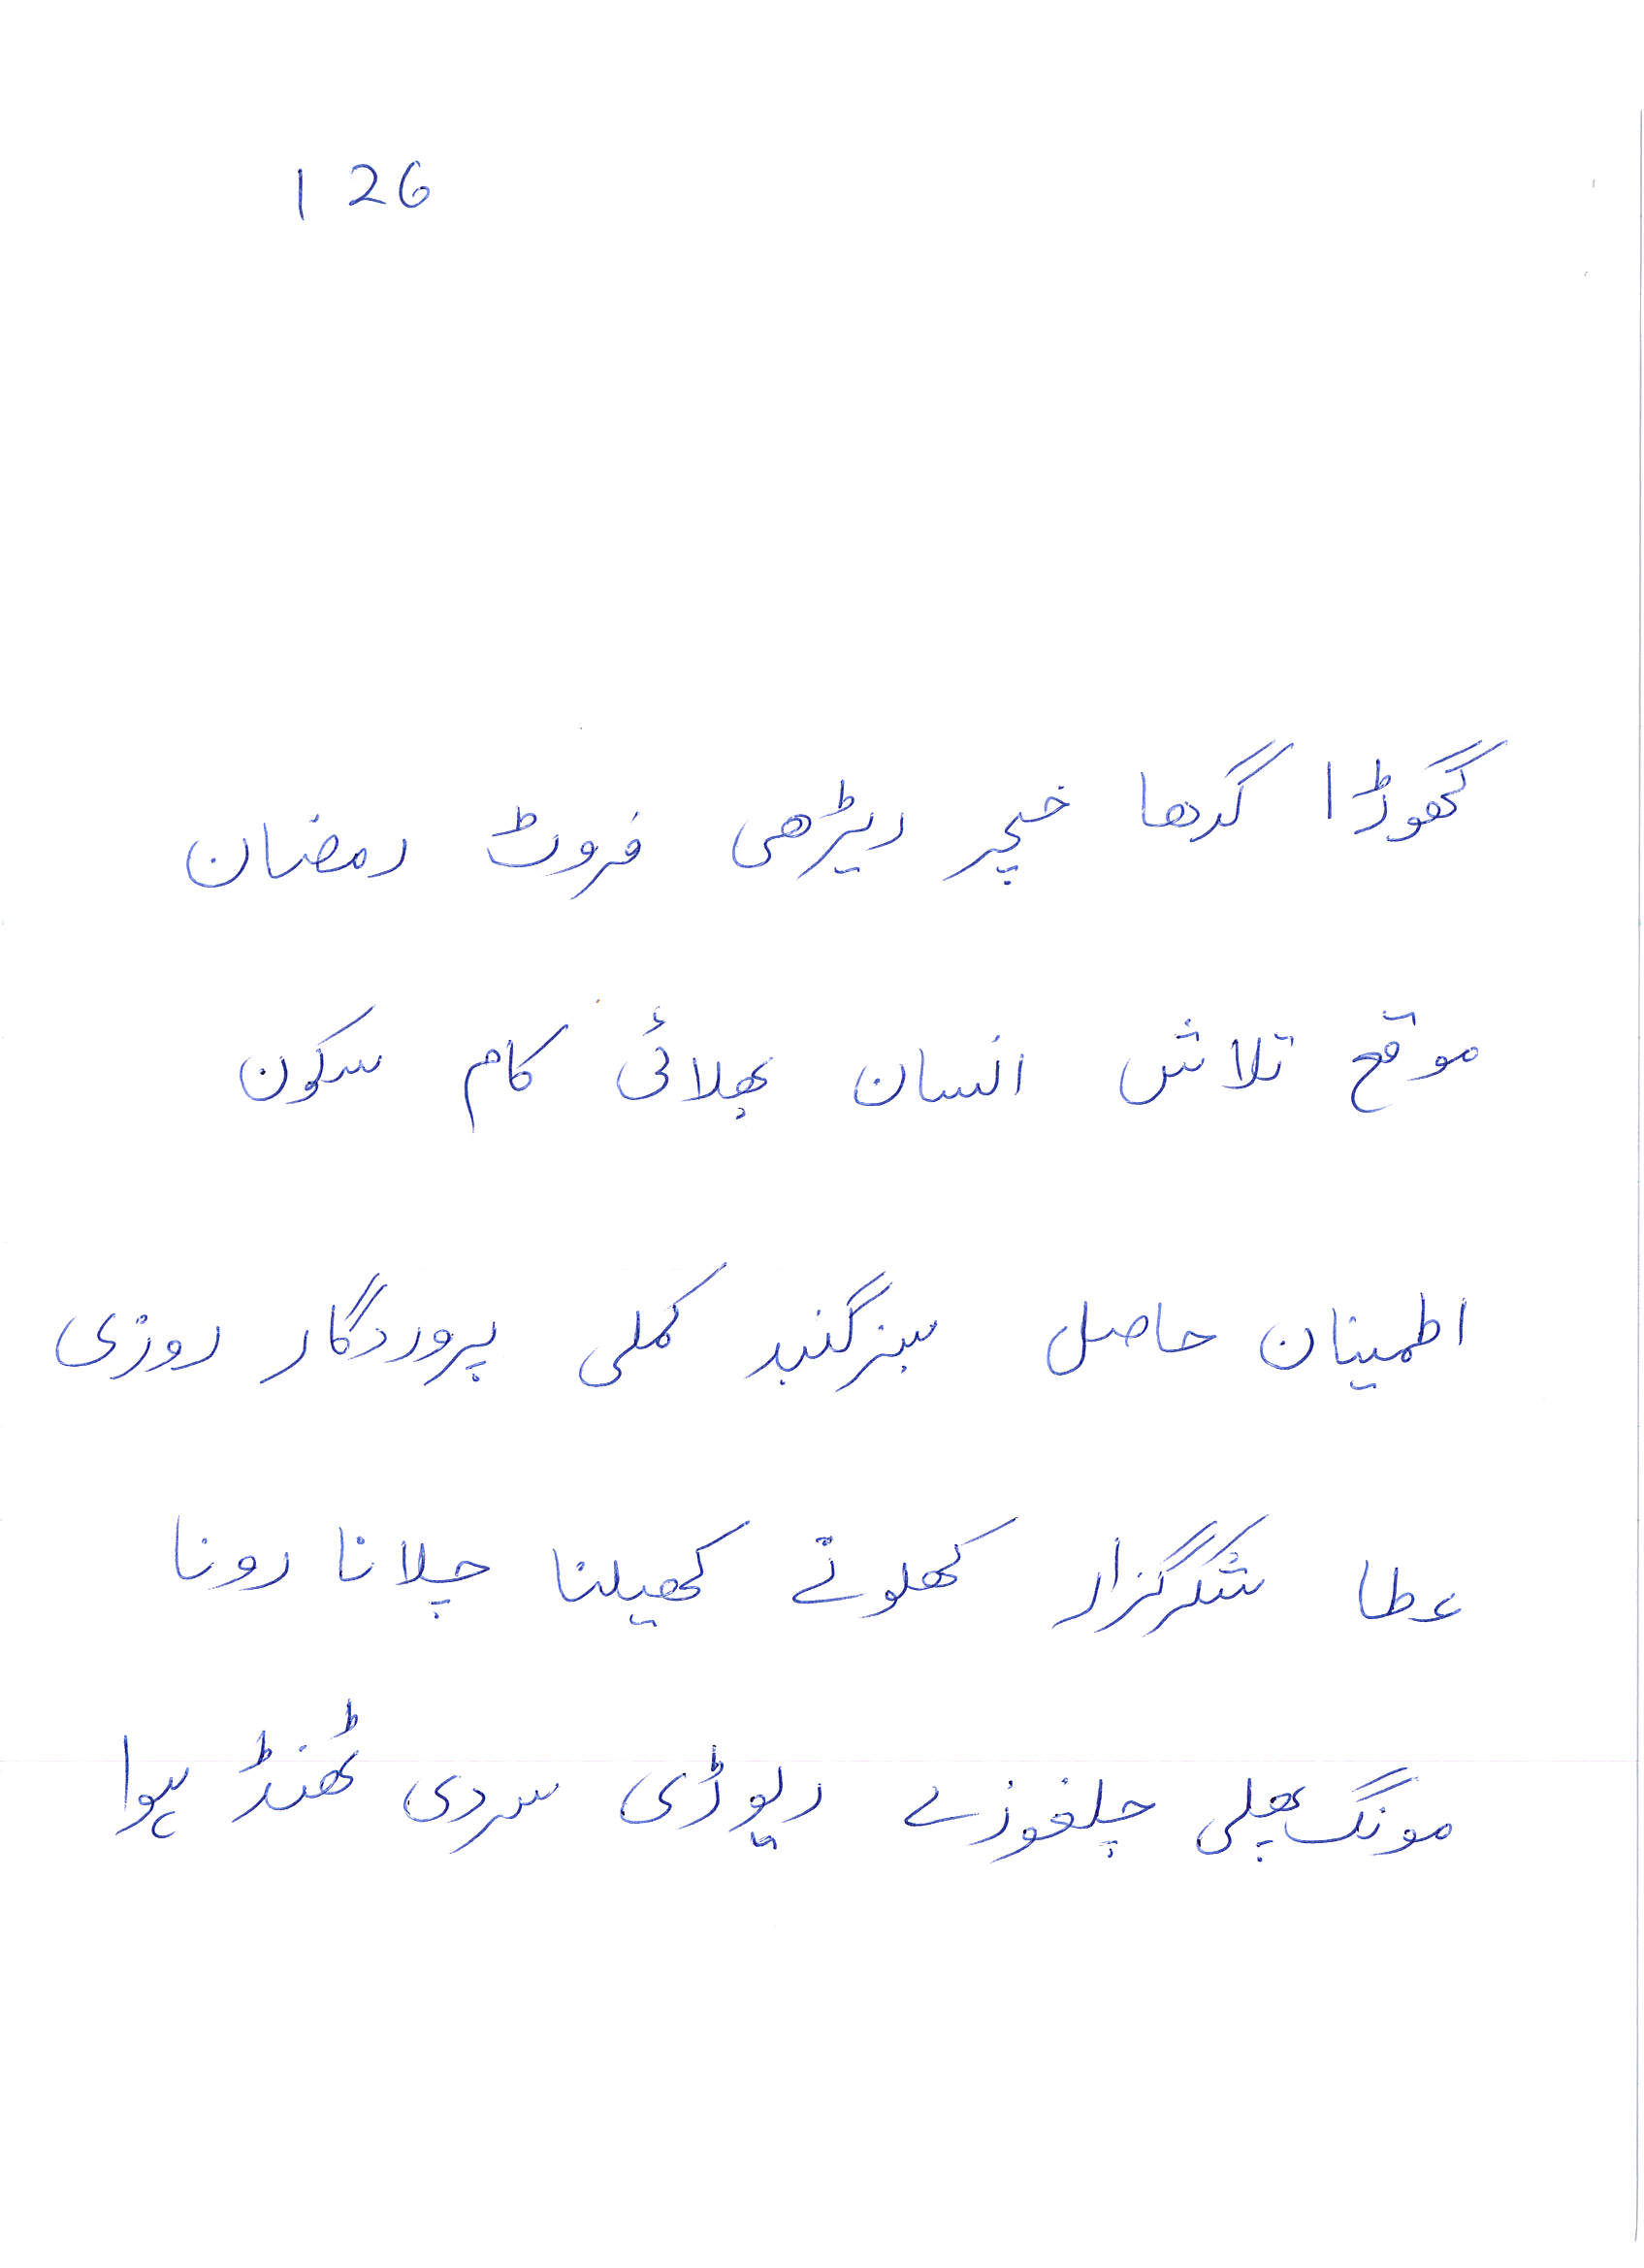 126
گھوڑا گدھا خچر ریڑھی فروٹ رمضان
موقع تلاش انسان بھلائی کام سکون
اطمینان حاصل سبزگنبد کملی پروردگار روزی
عطا شکرگزار کھلونے کھیلنا چلانا رونا
مونگ پھلی چلغوزے ریوڑی سردی ٹھنڈ ہوا